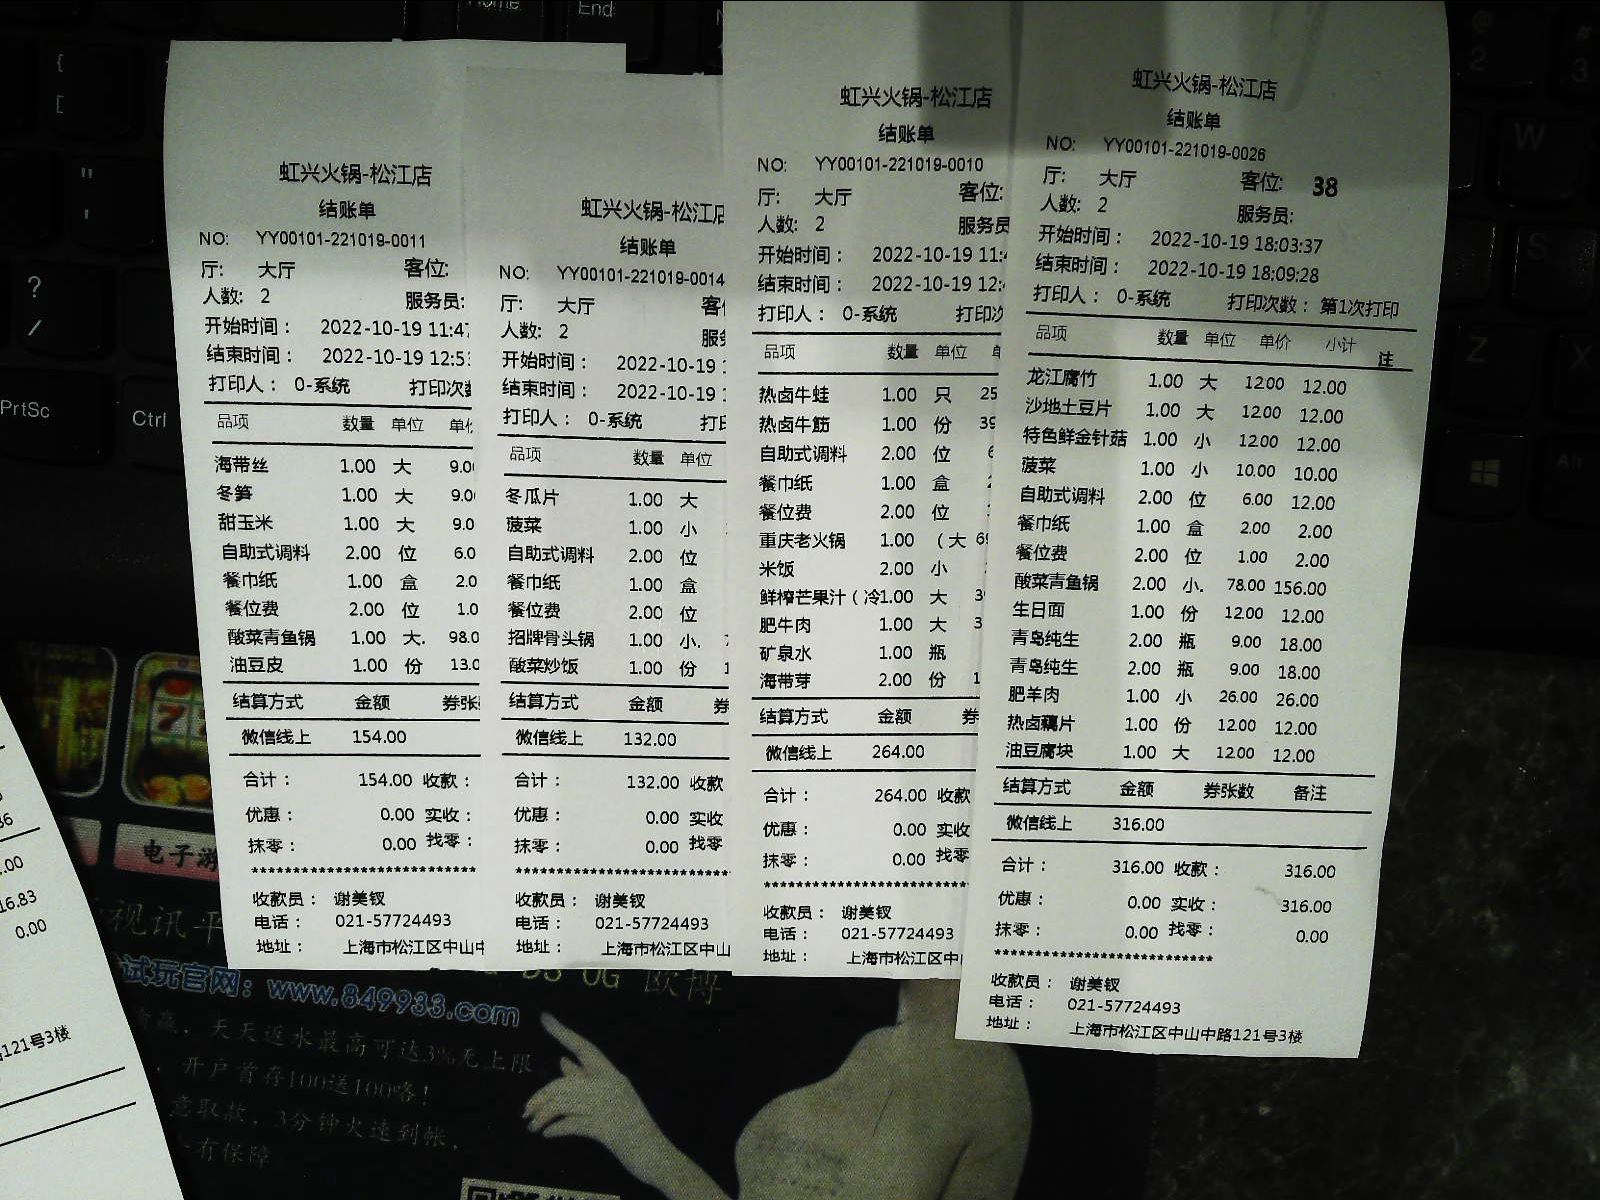 Home
End
{
[
"
'
?
/
PrtSc
Ctrl
虹兴火锅-松江店
结账单
NO: YY00101-221019-0011
厅: 大厅 客位:
人数: 2 服务员:
开始时间： 2022-10-19 11:47
结束时间： 2022-10-19 12:53
打印人： 0-系统 打印次数
品项 数量 单位 单价
海带丝 1.00 大 9.00
冬笋 1.00 大 9.00
甜玉米 1.00 大 9.0
自助式调料 2.00 位 6.0
餐巾纸 1.00 盒 2.0
餐位费 2.00 位 1.0
酸菜青鱼锅 1.00 大. 98.0
油豆皮 1.00 份 13.0
结算方式 金额 券张
微信线上 154.00
合计： 154.00 收款：
优惠： 0.00 实收：
抹零： 0.00 找零：
****************************
收款员： 谢美钗
电话： 021-57724493
地址： 上海市松江区中山中
虹兴火锅-松江店
结账单
NO: YY00101-221019-0014
厅: 大厅 客
人数: 2 服
开始时间： 2022-10-19 1
结束时间： 2022-10-19 1
打印人： 0-系统 打印
品项 数量 单位
冬瓜片 1.00 大
菠菜 1.00 小
自助式调料 2.00 位
餐巾纸 1.00 盒
餐位费 2.00 位
招牌骨头锅 1.00 小.
酸菜炒饭 1.00 份 1
结算方式 金额 券
微信线上 132.00
合计： 132.00 收款
优惠： 0.00 实收
抹零： 0.00 找零
***************************
收款员： 谢美钗
电话： 021-57724493
地址： 上海市松江区中山
虹兴火锅-松江店
结账单
NO: YY00101-221019-0010
厅: 大厅 客位:
人数: 2 服务员
开始时间： 2022-10-19 11:4
结束时间： 2022-10-19 12:4
打印人： 0-系统 打印次
品项 数量 单位 单
热卤牛蛙 1.00 只 25
热卤牛筋 1.00 份 39
自助式调料 2.00 位 6
餐巾纸 1.00 盒 2
餐位费 2.00 位
重庆老火锅 1.00 （大 69
米饭 2.00 小
鲜榨芒果汁（冷1.00 大 3
肥牛肉 1.00 大 3
矿泉水 1.00 瓶
海带芽 2.00 份 1
结算方式 金额 券
微信线上 264.00
合计： 264.00 收款
优惠： 0.00 实收
抹零： 0.00 找零
***************************
收款员： 谢美钗
电话： 021-57724493
地址： 上海市松江区中
虹兴火锅-松江店
结账单
NO: YY00101-221019-0026
厅: 大厅 客位: 38
人数: 2 服务员:
开始时间： 2022-10-19 18:03:37
结束时间： 2022-10-19 18:09:28
打印人： 0-系统 打印次数： 第1次打印
品项 数量 单位 单价 小计 注
龙江腐竹 1.00 大 12.00 12.00
沙地土豆片 1.00 大 12.00 12.00
特色鲜金针菇 1.00 小 12.00 12.00
菠菜 1.00 小 10.00 10.00
自助式调料 2.00 位 6.00 12.00
餐巾纸 1.00 盒 2.00 2.00
餐位费 2.00 位 1.00 2.00
酸菜青鱼锅 2.00 小. 78.00 156.00
生日面 1.00 份 12.00 12.00
青岛纯生 2.00 瓶 9.00 18.00
青岛纯生 2.00 瓶 9.00 18.00
肥羊肉 1.00 小 26.00 26.00
热卤藕片 1.00 份 12.00 12.00
油豆腐块 1.00 大 12.00 12.00
结算方式 金额 券张数 备注
微信线上 316.00
合计： 316.00 收款： 316.00
优惠： 0.00 实收： 316.00
抹零： 0.00 找零： 0.00
****************************
收款员： 谢美钗
电话： 021-57724493
地址： 上海市松江区中山中路121号3楼
2
3
W
S
Z
X
Alt
36
.00
16.83
0.00
121号3楼
电子游
视讯平
试玩官网：www.849933.com
欧博
天天返水最高可达3%无上限
开户首存100送100咯！
意取款，3分钟火速到帐，
有保障